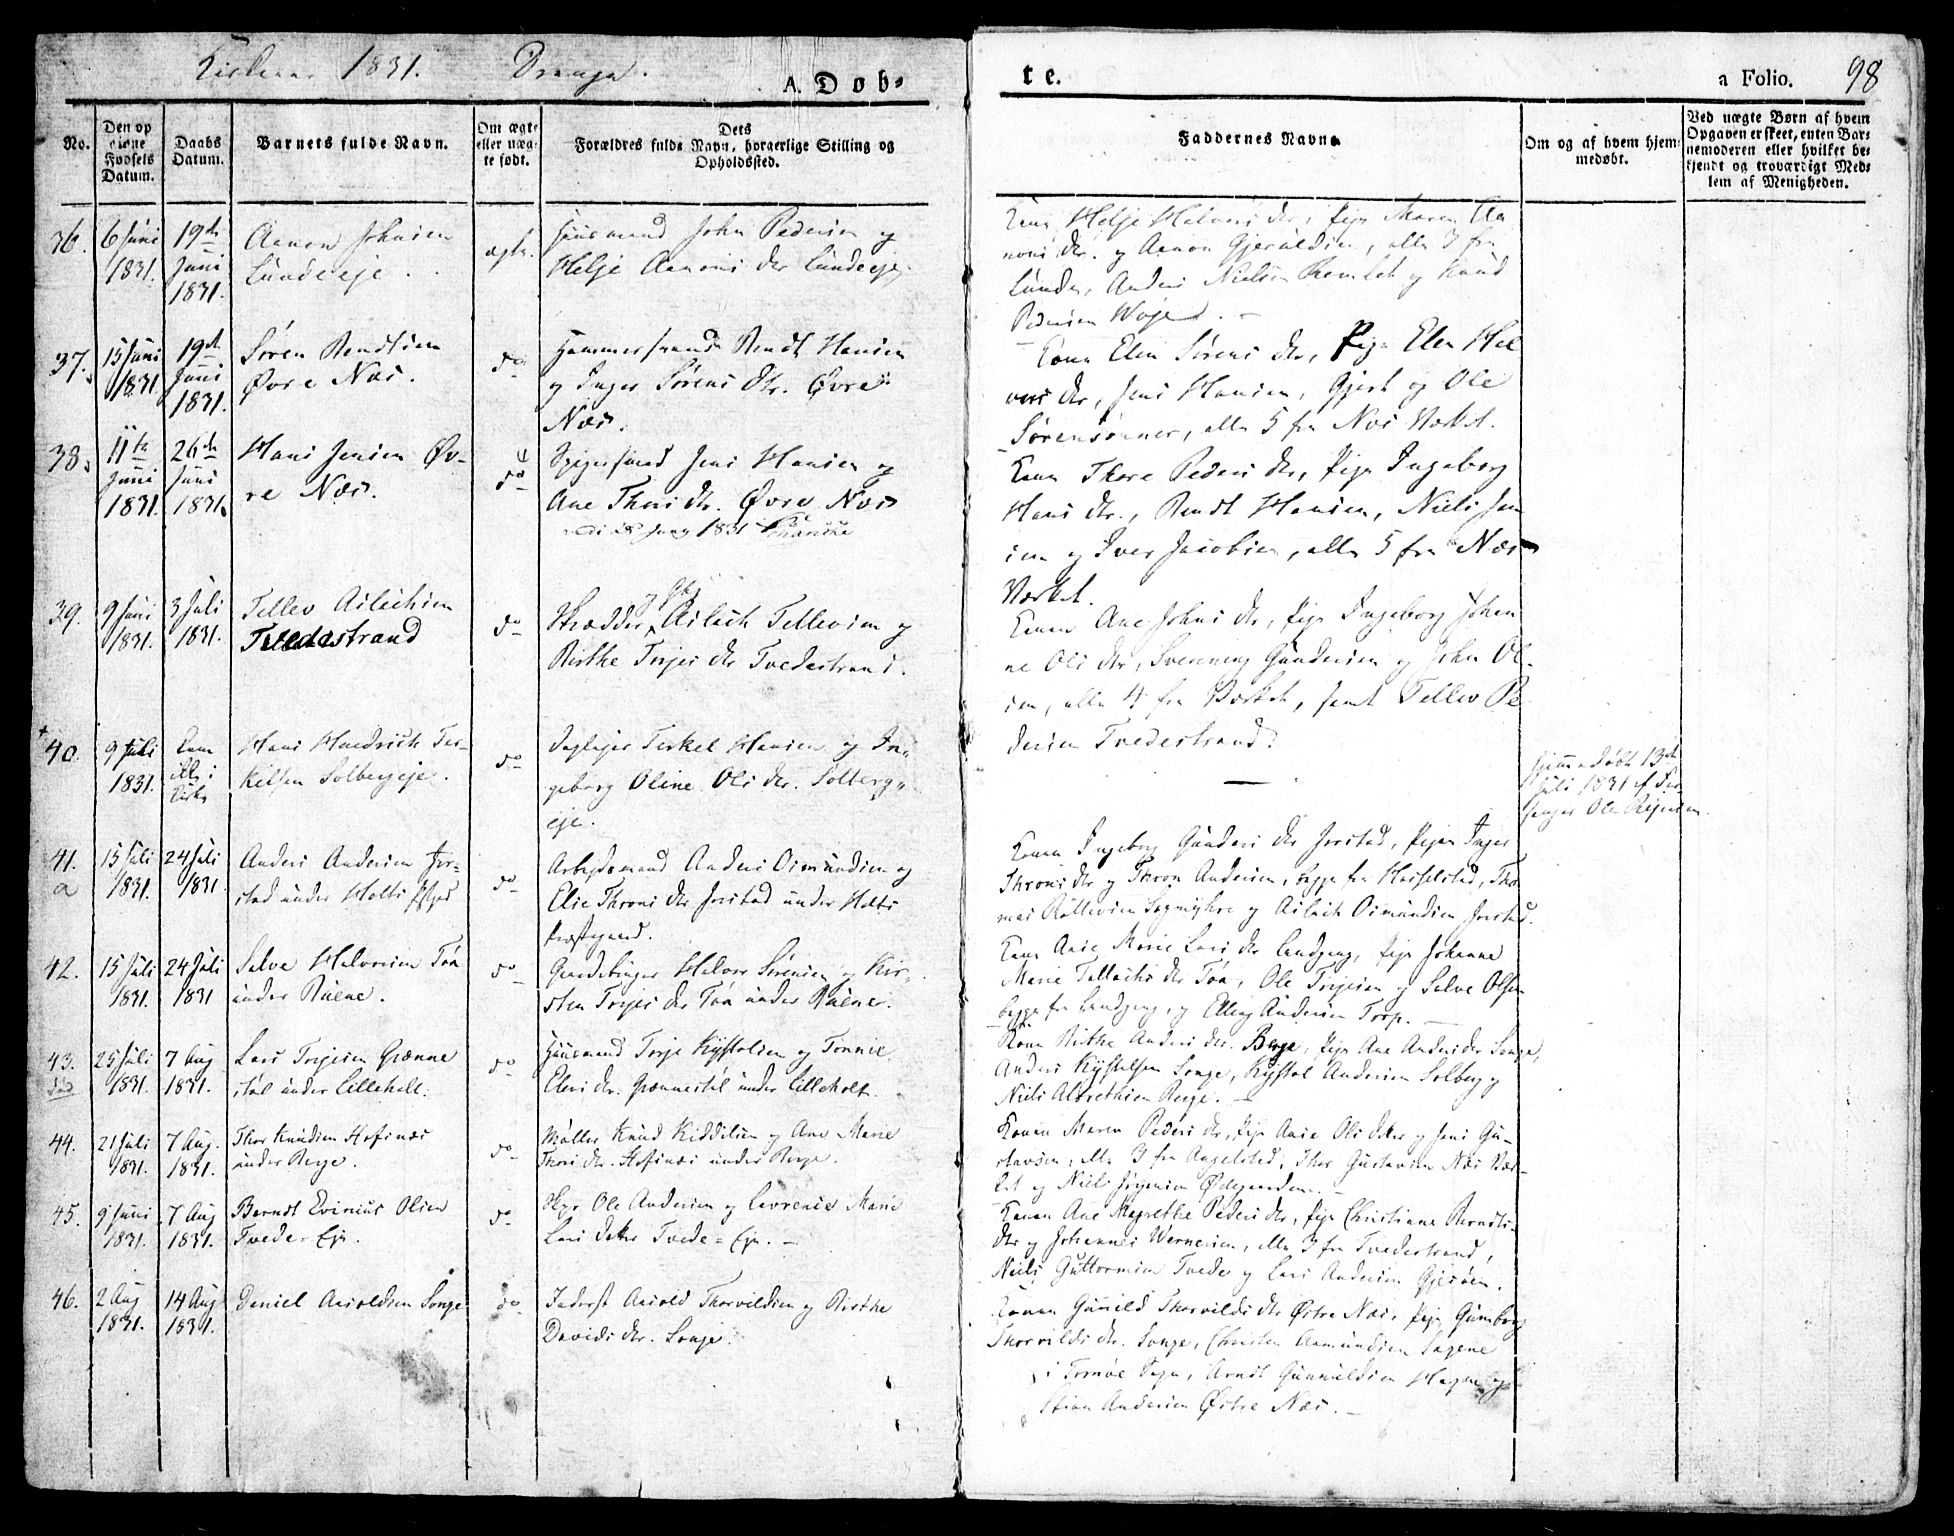 Kirkeaar 1831. Drenge.
A. Døb-
te.
a Folio. 98
No.
Den op
givne
Fødsels
Datum.
Daabs
Datum.
Barnets fulde Navn.
Om ægte
eller uæg-
te født.
Dets
Forældres fulde Navn, borgerlige Stilling og
Opholdssted.
Faddernes Navne
Om og af hvem hjem-
medøbt.
Ved uægte Børn af hvem
Opgaven er skeet, enten Bar-
nemoderen eller hvilket be-
kjendt og troværdigt Med-
lem af Menigheden.
36.
6 Juni
1831.
19de
Juni
1831.
Aanon Johnsen
Lundeeje.
ægte.
Huusmand John Pedersen og
Helje Aanons dtr Lundeeje.
Kone Helje Halvors dtr, Pige Maren Aa
nons dtr. og Aanon Gjeruldsen, alle 3 fra
Lunde, Anders Nielsen Ramlet og Knud
Pedersen
37.
15 Juni
1831.
19de
Juni
1831.
Søren Bendtsen
Øvre Næs.
do
Hammersmed Bendt Hansen
og Inger Sørens Dtr. Øvre
Næs.
Kone Elen Sørens dtr, Pige Elen Hal
vors dtr, Jens Hansen, Gjert og Ole
Sørensønner, alle 5 fra Næs Værket.
38.
11te
Juni
1831.
26de
Juni
1831.
Hans Jensen Øv-
re Næs.
do
Spigersmed Jens Hansen og
Ane Thors dtr. Øvre Næs
1831
Kone Thore Peders dtr, Pige Ingeborg
Hans dtr., Bendt Hansen, Niels Jen
sen og Iver Jacobsen, alle 5 fra Næs
Værket.
39.
9 Juni
1831.
3 Juli
1831.
Tellev Aslachsen
Tvedestrand
do
Skrædder Aslach Tellevsen og
Birthe Terjes dtr Tvedestrand.
Konen Ane Johns dtr, Pige Ingeborg Johan
ne Ols dtr, Svenning Gundersen og John Ol-
sen, alle 4 fra Værket, samt Tellev Pe
dersen Tvedestrand.
40.
9 Juli
1831.
Hans Hendrich Ter-
kelsen Solbergeje.
do
Daglejer Terkel Hansen og In-
geborg Oline Ols dtr. Solberg-
eje.
Hjemmedøbt 13de
Juli 1831 af
Ole
41.
a
15 Juli
1831.
24 Juli
1831.
Anders Andersen Jor-
stad under Holts
do
Arbejdsmand Anders Osmundsen og
Elie Throns dtr Jorstad under Holts
Præstegaard.
Konen Ingeborg Gunders dtr Jorstad, Pigen Inger
Throns dtr og Thron Andersen, begge fra Hasselstad, Tho
mas Røllevsen Sagmyhre og Aslach Osmundsen Jorstad.
42.
15 Juli
1831.
24 Juli
1831
Salve Halvorsen Töa
under Ruene.
do
Gaardebruger Halvor Sørensen og Kir-
sten Terjes dtr Töa under Ruene.
Kone Anne Marie Lars dtr Landgang, Pige Johanne
Marie Tallachs dtr Töa, Ole Terjesen og Salve Olsen
begge fra Landgang, og Elling Andersen Torp.
43.
død
25 Juli
1831.
7 Aug
1831.
Lars Terjesen Grønne
støl under Lilleholt.
do
Huusmand Terje Kystolsen og Tonnie
Elevs dtr. Grønnestøl under Lilleholt.
Kone Birthe Anders dtr. Berge, Pige Ane Anders dtr Songe,
Anders Kystelsen Songe, Kystol Andersen Solberg og
Niels Albrethsen Berge.
44.
21 Juli
1831.
7 Aug.
1831.
Thor Knudsen Hofsnæs
under Berge.
do
Møller Knud Kiddilsen og Ane Marie
Thors dtr. Hofsnæs under Berge.
Konen Maren Peders dtr, Pige Anne Ols dtr og Jens Gu-
stavsen, alle 3 fra Angelstad, Thor Gustavsen Næs Vær-
ket og Niels Jørgensen Ødegaarden.
45.
9 Juni
1831.
7 Aug
1831.
Berndt Evinius Olsen
Tvede-Eje.
do
Ole Andersen og Lavrence Marie
Lars dtr Tvede-Eje.
Konen Ane Magrethe Peders dtr, Pige Christiane Berndts-
dtr og Johannes Wernersen, alle 3 fra Tvedestrand,
Niels Guttormsen Tvede og Lars Andersen Gjesøen.
46.
2 Aug
1831.
14 Aug
1831.
Daniel Aasoldsen Songe
do
Inderst Aasold Thorvildsen og Birthe
Davids dtr. Songe.
Konen Gunild Thorvilds dtr Østre Næs, Pige Gunborg
Thorvilds dtr. Songe, Christen Aamundsen Sagene
i Tromøe Sogn, Arndt Gunnuldsen
Stian Andersen Østre Næs.